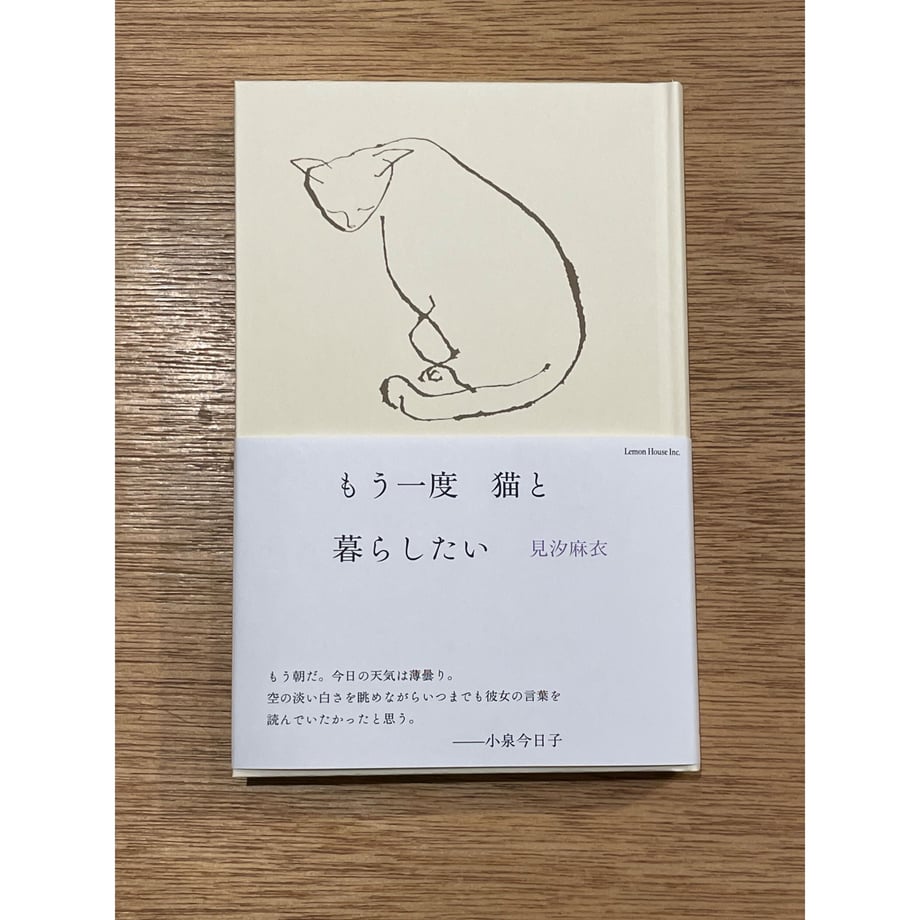 Lemon House Inc.
もう一度　猫と
暮らしたい　見汐麻衣
もう朝だ。今日の天気は薄曇り。
空の淡い白さを眺めながらいつまでも彼女の言葉を
読んでいたかったと思う。
――小泉今日子